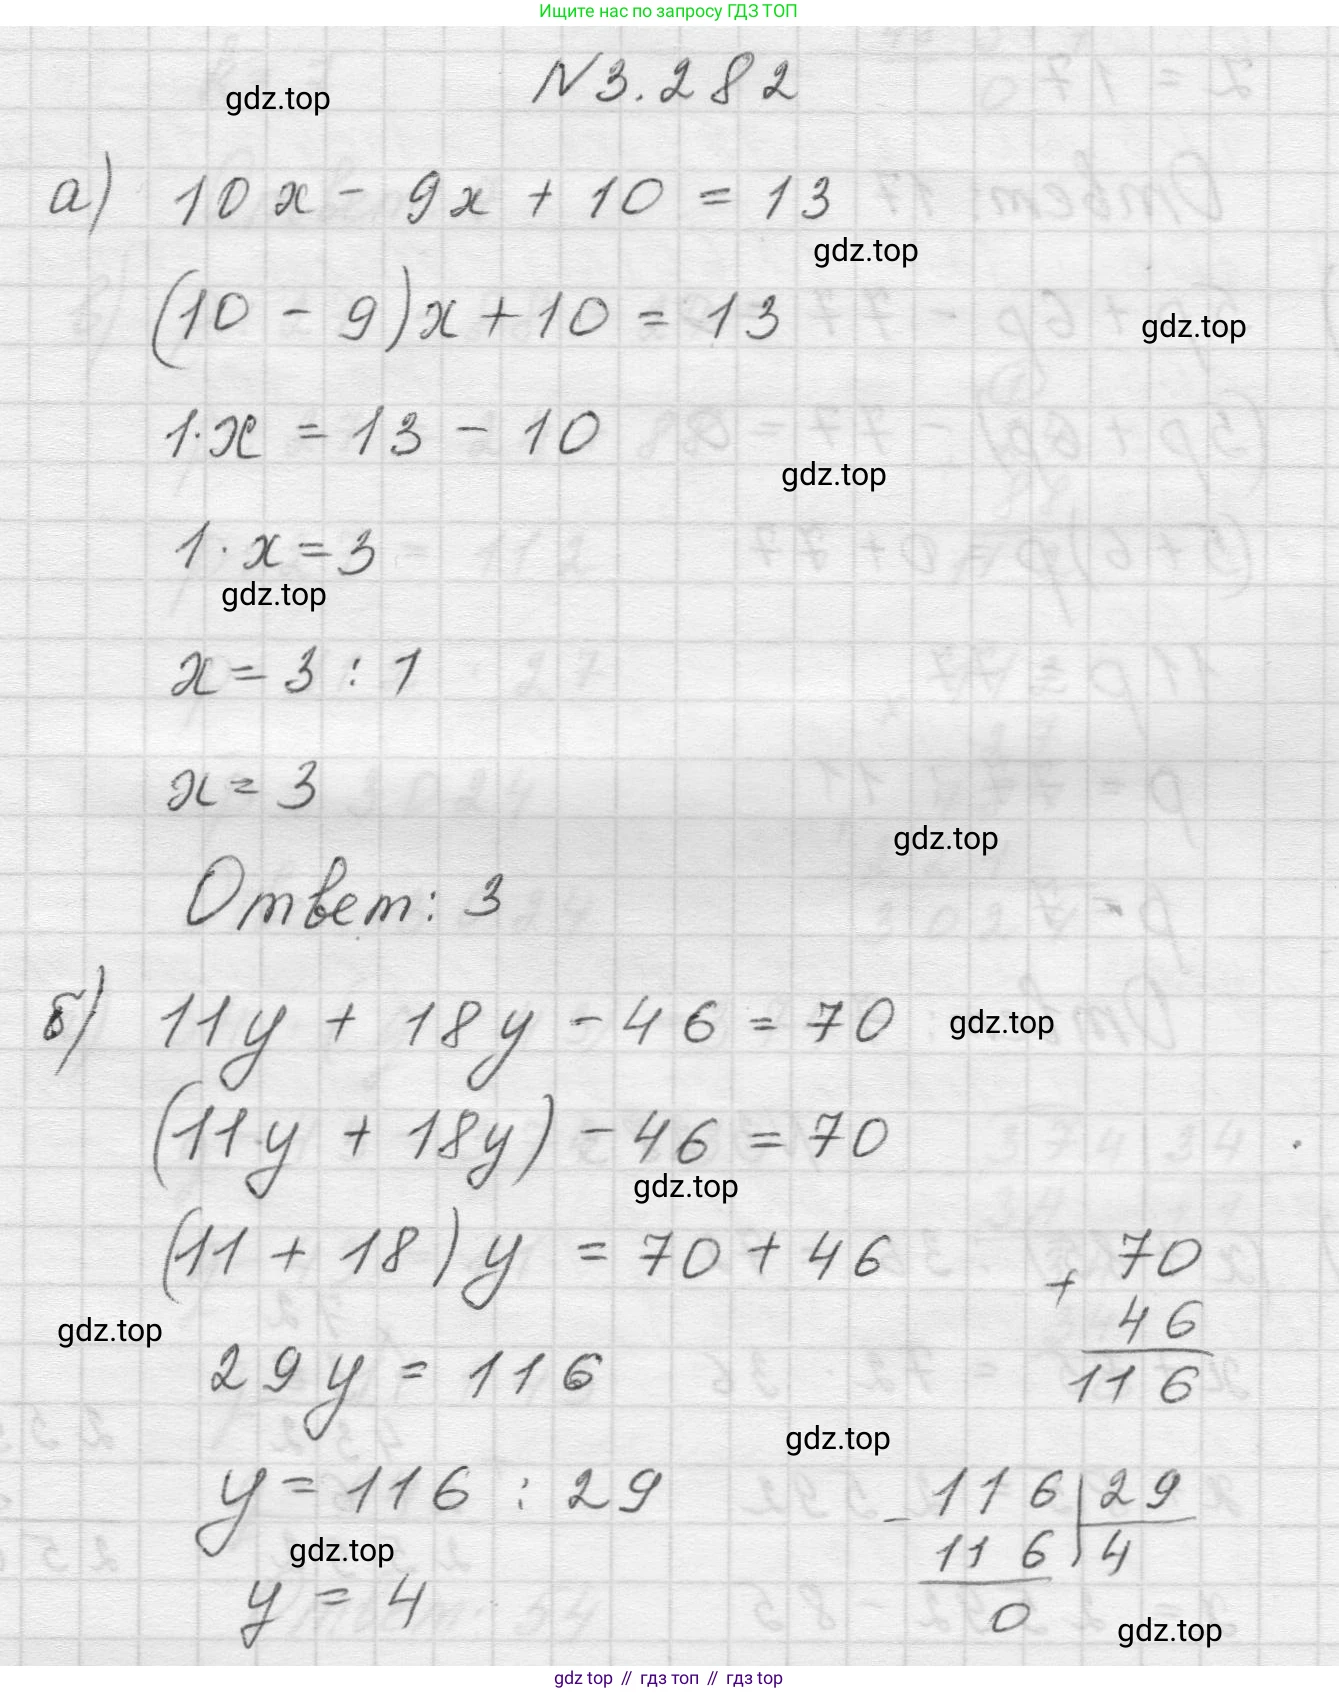 Ищите нас по запросу ГДЗ ТОП
N 3.282
gdz.top
а) 10x - 9x + 10 = 13
gdz.top
(10 - 9)x + 10 = 13
gdz.top
1·x = 13 - 10
gdz.top
1·x = 3
gdz.top
x = 3 : 1
x = 3
gdz.top
Ответ: 3
б) 11y + 18y - 46 = 70
gdz.top
(11y + 18y) - 46 = 70
gdz.top
(11 + 18)y = 70 + 46
+ 70
46
116
gdz.top
29y = 116
gdz.top
y = 116 : 29
- 116 | 29
116 | 4
0
gdz.top
y = 4
gdz.top
gdz top // гдз топ // гдз top